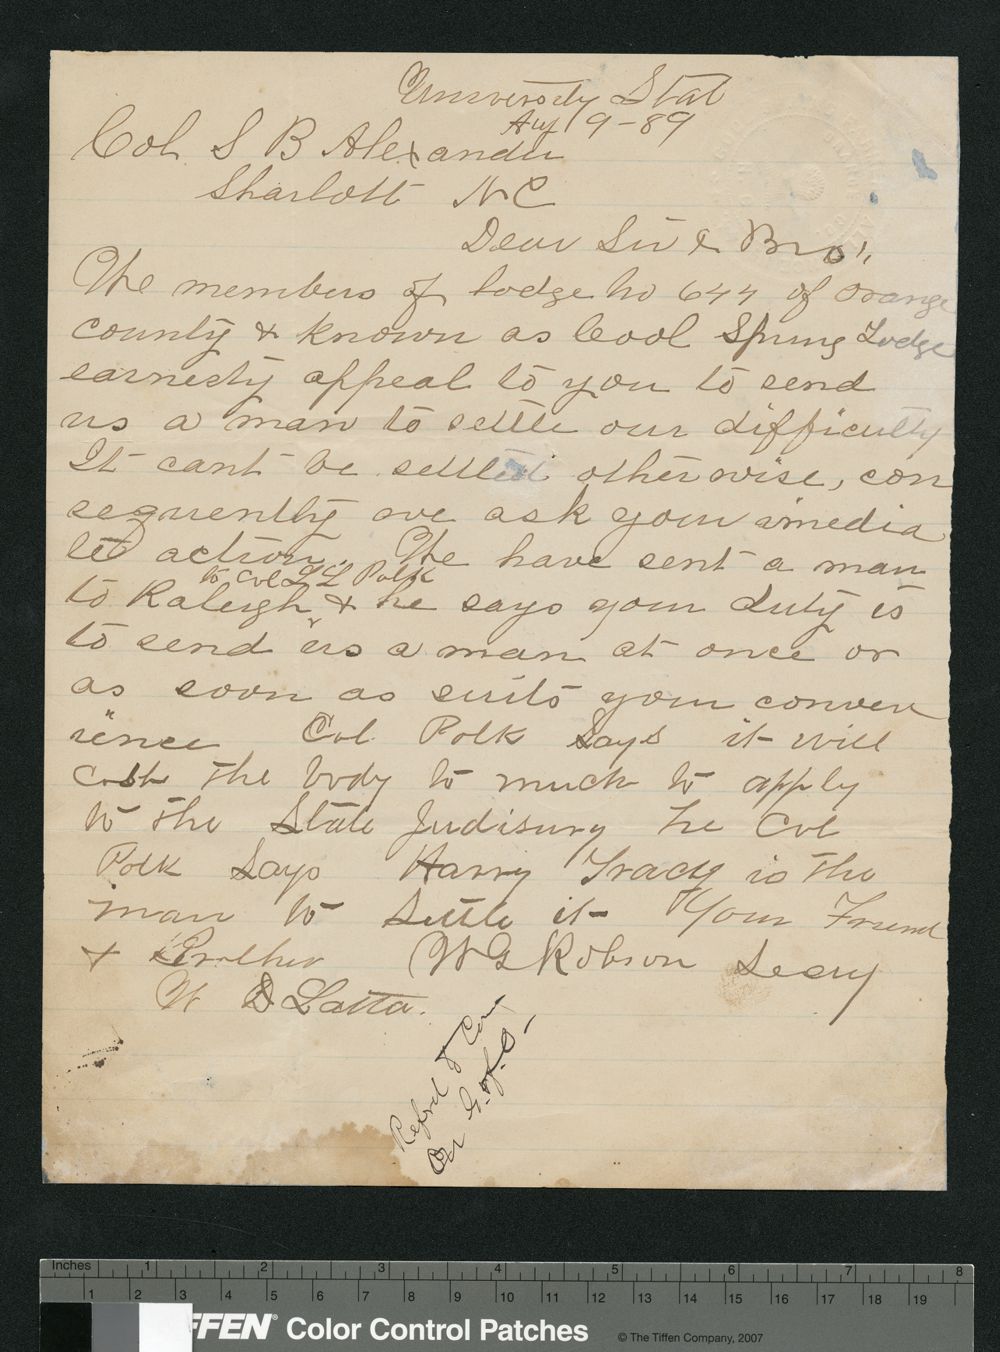 University Stat
Aug 9-89
Col. S B Alexander
Sharlott N C
Dear Sir & Bro",
The members of lodge No 644 of orange
county & known as Cool Spring Lodge
earnesty appeal to you to send
us a man to settle our difficulty
It cant be settled otherwise, con
sequently we ask your imedia
te action. We have sent a man
to Col L L Polk
to Raleigh & he says your duty is
to send us a man at once or
as soon as suits your conven
ience Col. Polk Says it will
Cost the body to much to apply
to the State Judisury he Col
Polk Says Harry Tracy is the
man to Settle it- Your Friend
& Brother W G Robson Secry
W D Latta.
Referd to Com
on G. of O-
Inches 1 2 3 4 5 6 7 8
1 2 3 4 5 6 7 8 9 10 11 12 13 14 15 16 17 18 19
FFEN® Color Control Patches © The Tiffen Company, 2007